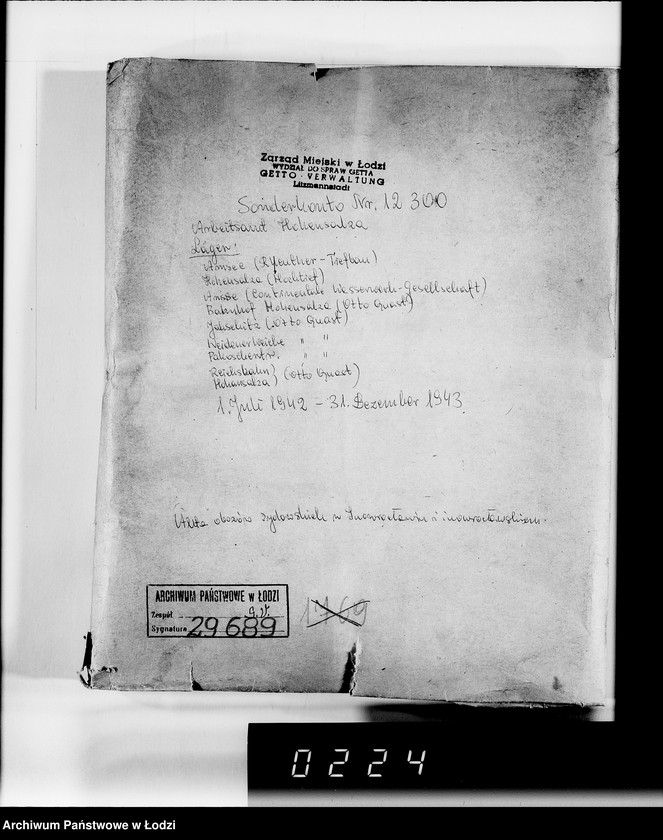 Zarząd Miejski w Łodzi
WYDZIAŁ DO SPRAW GETTA
GETTO-VERWALTUNG
Litzmannstadt
Sonderkonto Nr. 12 300
Arbeitsamt Hohensalza
Lager:
Amsee (Tiefbau)
Hohensalza (Hochtief)
Amsee (Continentale Wasserwerk-Gesellschaft)
Bahnhof Hohensalza (Otto Quast)
Jakschitz (Otto Quast)
" "
" "
Reichsbahn } (Otto Quast)
Hohensalza
1. Juli 1942 – 31. Dezember 1943
Akta obozów żydowskich w Inowrocławiu i inowrocławskiem.
ARCHIWUM PAŃSTWOWE w ŁODZI
Zespół G.V.
Sygnatura 29689
1769
0224
Archiwum Państwowe w Łodzi